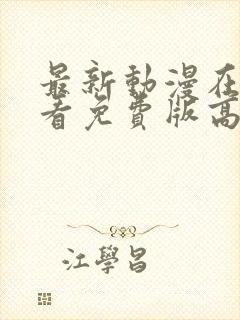 最新動漫在
看免費版高
江學昌